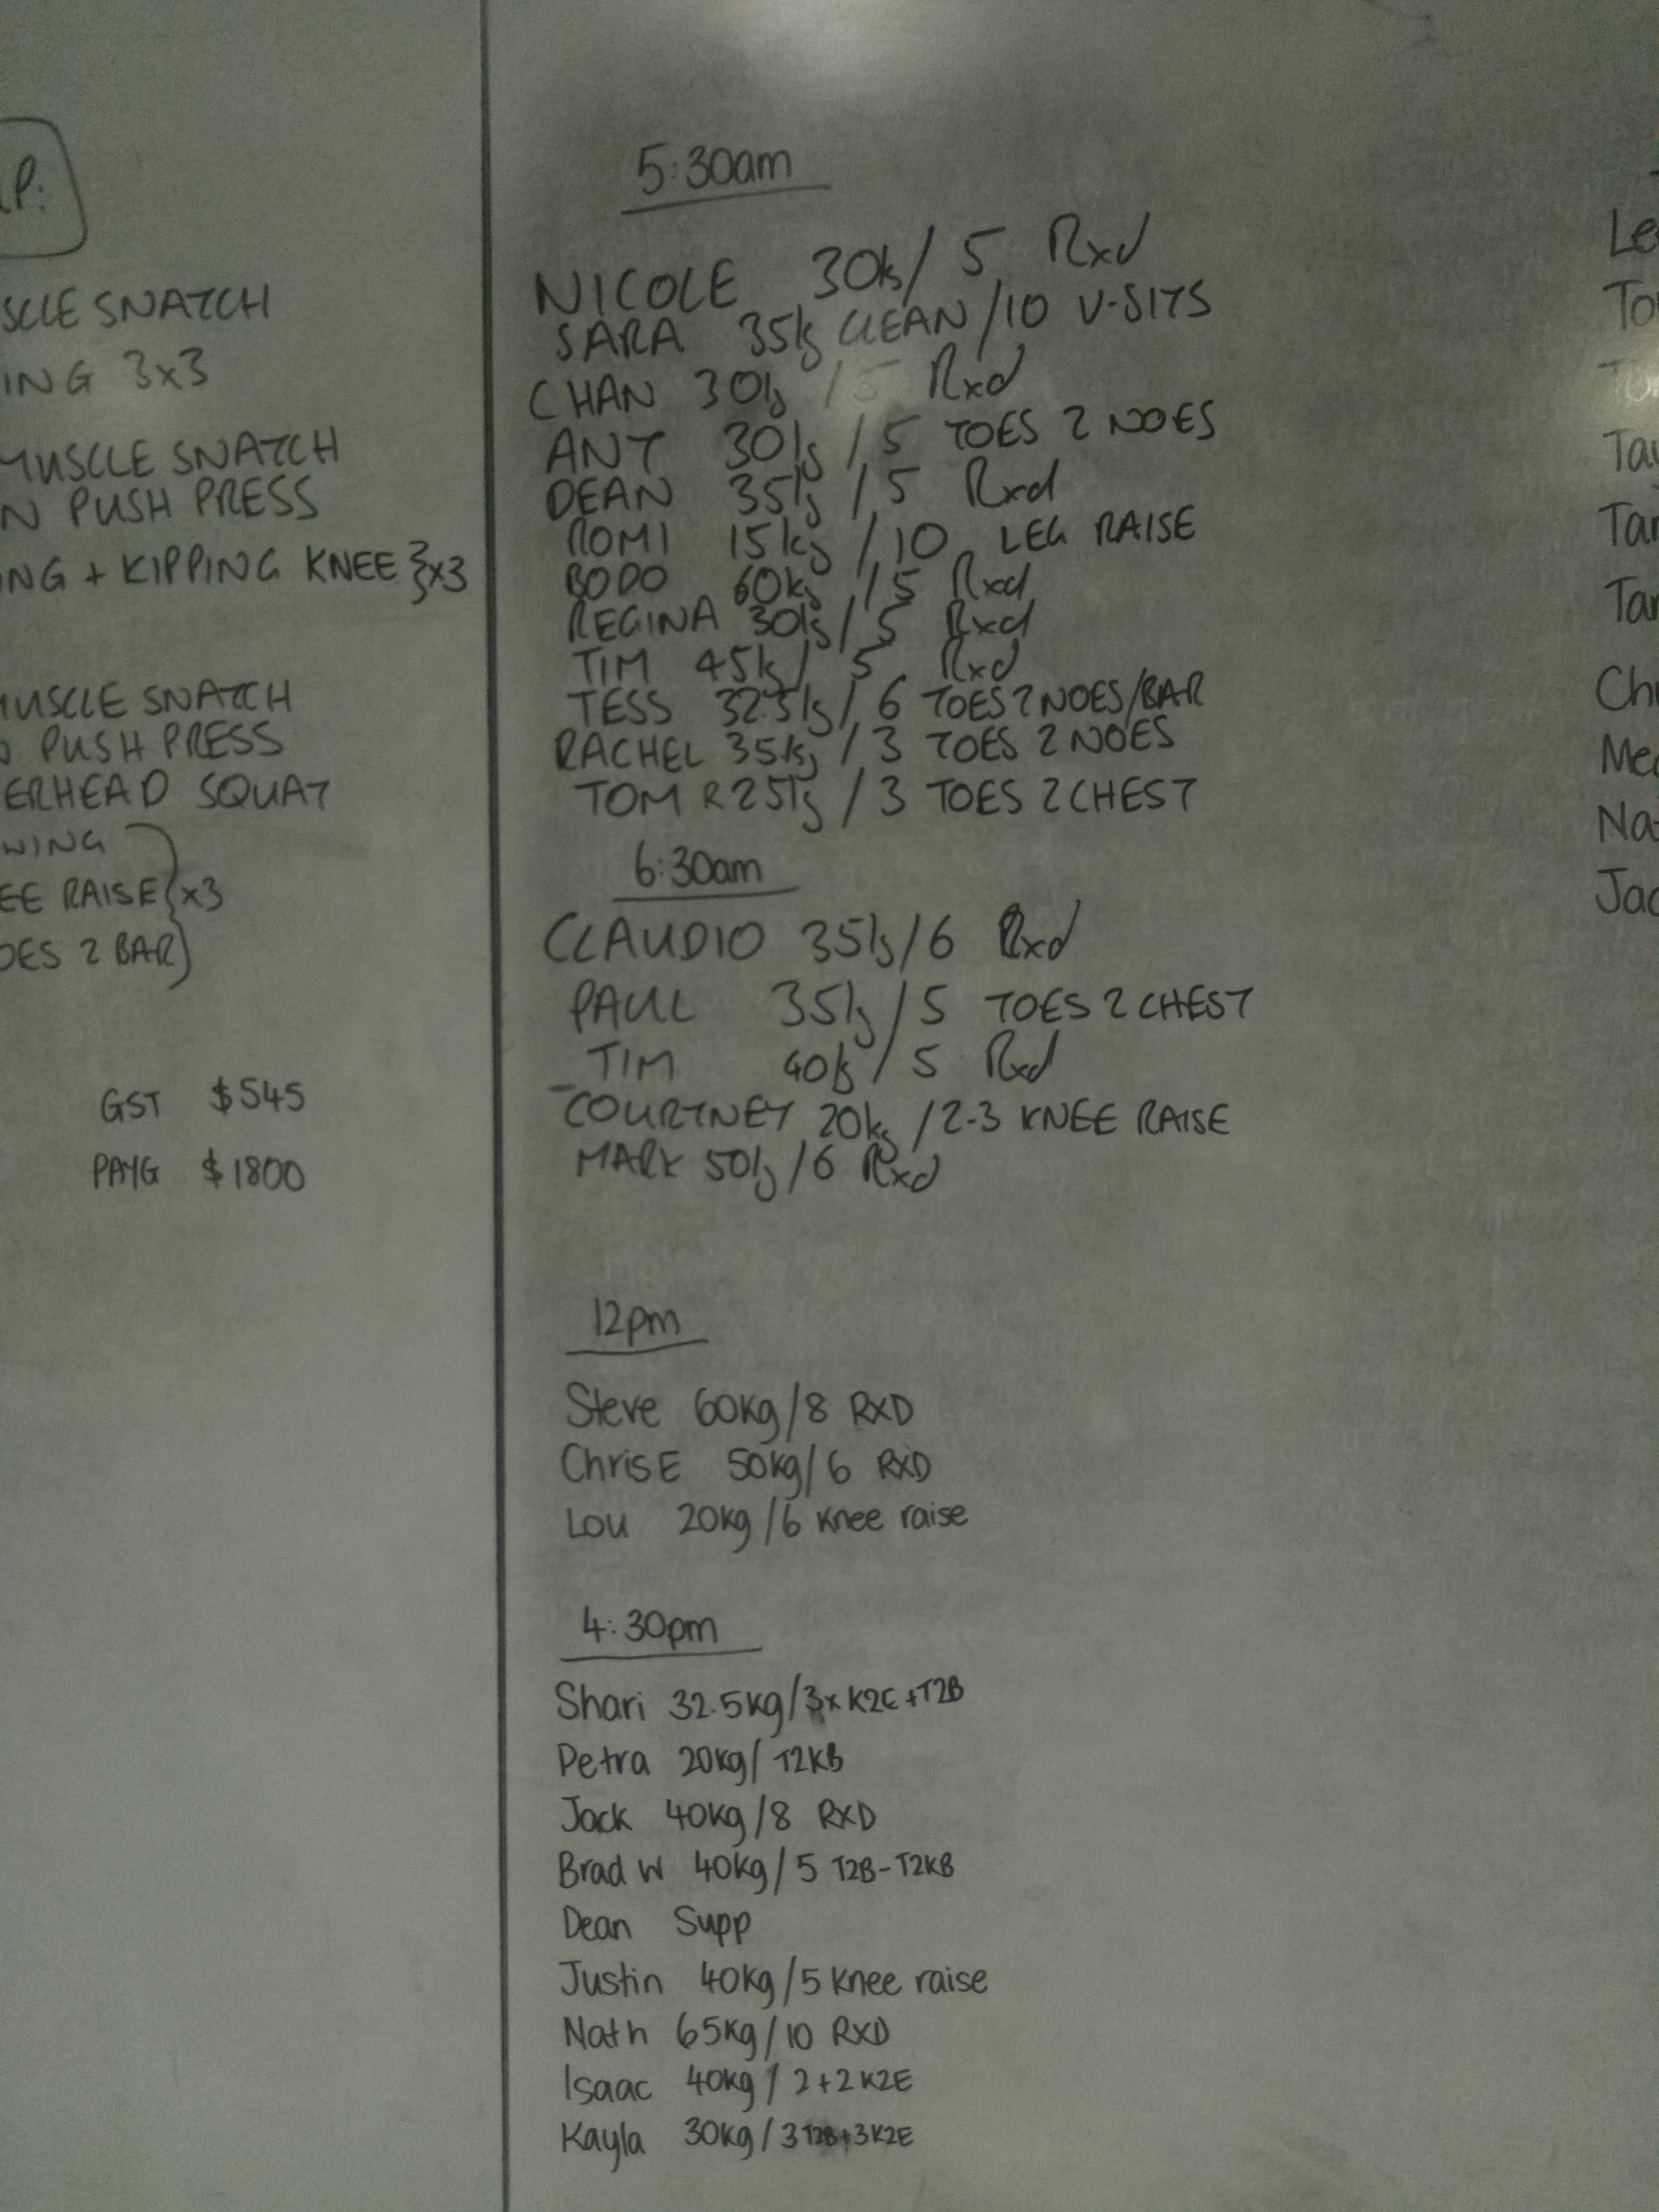 P:
SCLE SNATCH
ING 3x3
MUSCLE SNATCH
N PUSH PRESS
NG + KIPPING KNEE }x3
MUSCLE SNATCH
PUSH PRESS
ERHEAD SQUAT
NING
EE RAISE }x3
OES 2 BAR
GST $545
PAYG $1800
5:30am
NICOLE 30k/ 5 Rxd
SARA 35kg CLEAN /10 V-SITS
CHAN 30kg /5 Rxd
ANT 30kg /5 TOES 2 NOES
DEAN 35kg /5 Rxd
ROMI 15kg /10 LEG RAISE
BODO 60kg /5 Rxd
REGINA 30kg /5 Rxd
TIM 45k/ 5 Rxd
TESS 32.5kg / 6 TOES 2 NOES/BAR
RACHEL 35kg /3 TOES 2 NOES
TOM R 25kg /3 TOES 2 CHEST
6:30am
CLAUDIO 35kg/6 Rxd
PAUL 35kg/5 TOES 2 CHEST
TIM 40kg/5 Rxd
COURTNEY 20kg /2-3 KNEE RAISE
MARK 50kg /6 Rxd
12pm
Steve 60kg/8 RXD
Chris E 50kg/6 RXD
Lou 20kg/6 knee raise
4:30pm
Shari 32.5kg/3x K2E+T2B
Petra 20kg/ T2KB
Jack 40kg/8 RXD
Brad W 40kg/5 T2B-T2KB
Dean Supp
Justin 40kg/5 knee raise
Nath 65kg/10 RXD
Isaac 40kg/ 2+2 K2E
Kayla 30kg/3 T2B+3 K2E
Le
To
To
Tay
Tar
Tar
Ch
Me
Na
Jac